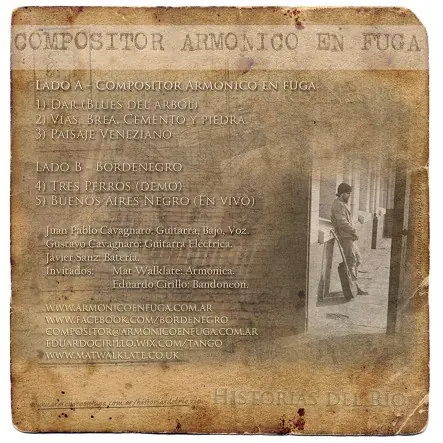 COMPOSITOR ARMONICO EN FUGA
LADO A - COMPOSITOR ARMONICO EN FUGA
1) DAR (BLUES DEL ÁRBOL)
2) VÍAS, BREA, CEMENTO Y PIEDRA
3) PAISAJE VENEZIANO
LADO B - BORDENEGRO
4) TRES PERROS (DEMO)
5) BUENOS AIRES NEGRO (EN VIVO)
Juan Pablo Cavagnaro: Guitarra, Bajo, Voz.
Gustavo Cavagnaro: Guitarra Electrica.
Javier Sanz: Bateria.
Invitados: Mat Walklate: Armónica.
Eduardo Cirillo: Bandoneon.
WWW.ARMONICOENFUGA.COM.AR
WWW.FACEBOOK.COM/BORDENEGRO
COMPOSITOR@ARMONICOENFUGA.COM.AR
EDUARDOCIRILLO.WIX.COM/TANGO
WWW.MATWALKLATE.CO.UK
HISTORIAS DEL RIO